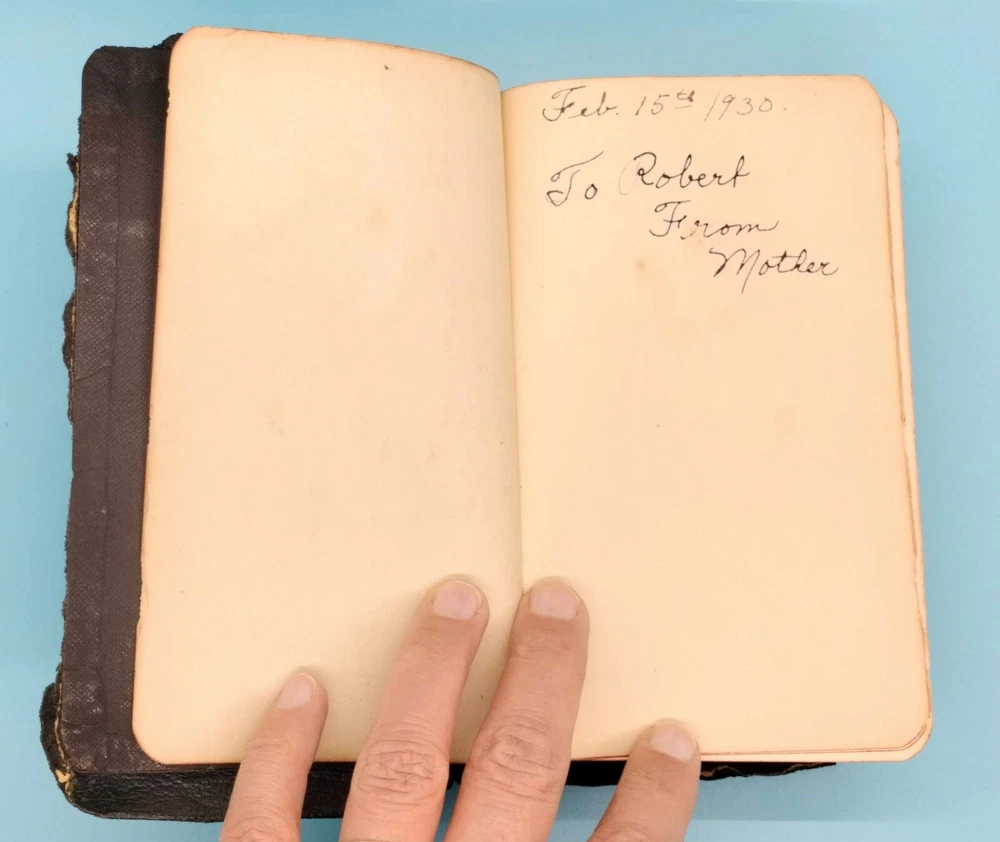 Feb. 15th 1930.
To Robert
From
Mother